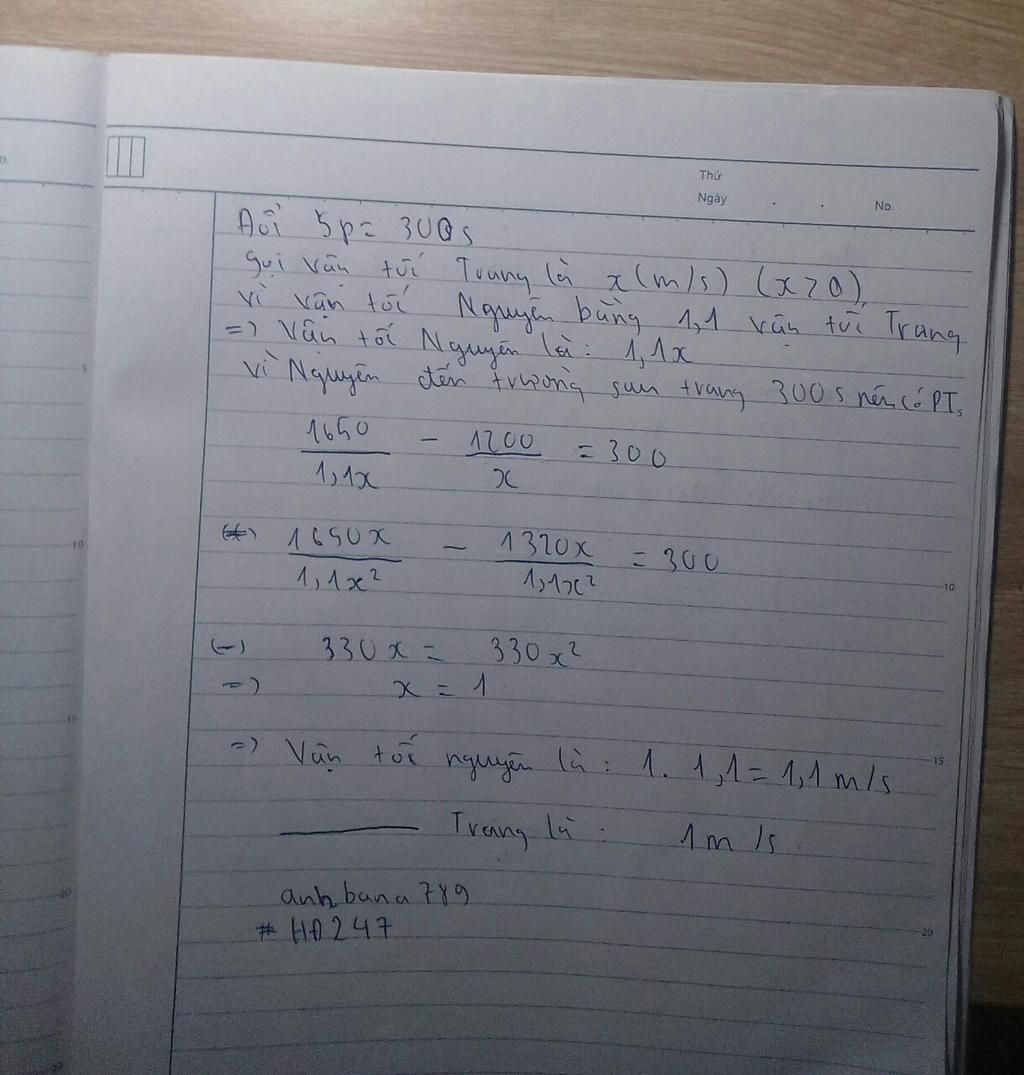 Thứ
Ngày . . No.
Đổi 5p = 300s
gọi vận tốc Trang là x(m/s) (x>0)
vì vận tốc Nguyên bằng 1,1 vận tốc Trang
=> Vận tốc Nguyên là: 1,1x
vì Nguyên đến trường sau trang 300s nên có PT:
1650/1,1x - 1200/x = 300
(*) 1650x/1,1x² - 1320x/1,1x² = 300
(-) 330x = 330x²
=) x = 1
=) Vận tốc nguyên là: 1. 1,1 = 1,1m/s
——— Trang là : 1m/s
anhbana789
# HĐ247
5
10
15
20
10
15
20